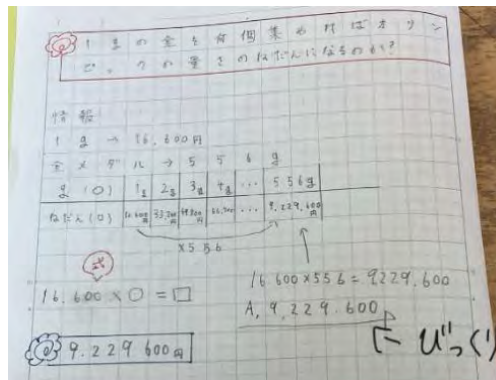 1gの金を何個集めればオリン
情報
1g → 16.600円
金メダル → 556g
g(〇) 1g 2g 3g 4g … 556g
ねだん(〇) 16.600円 33.200円 49.800円 … 9.229.600円
×556
式
16.600×〇=□
16.600×556=9229.600
A, 9,229.600
9.229.600円
←びっくり